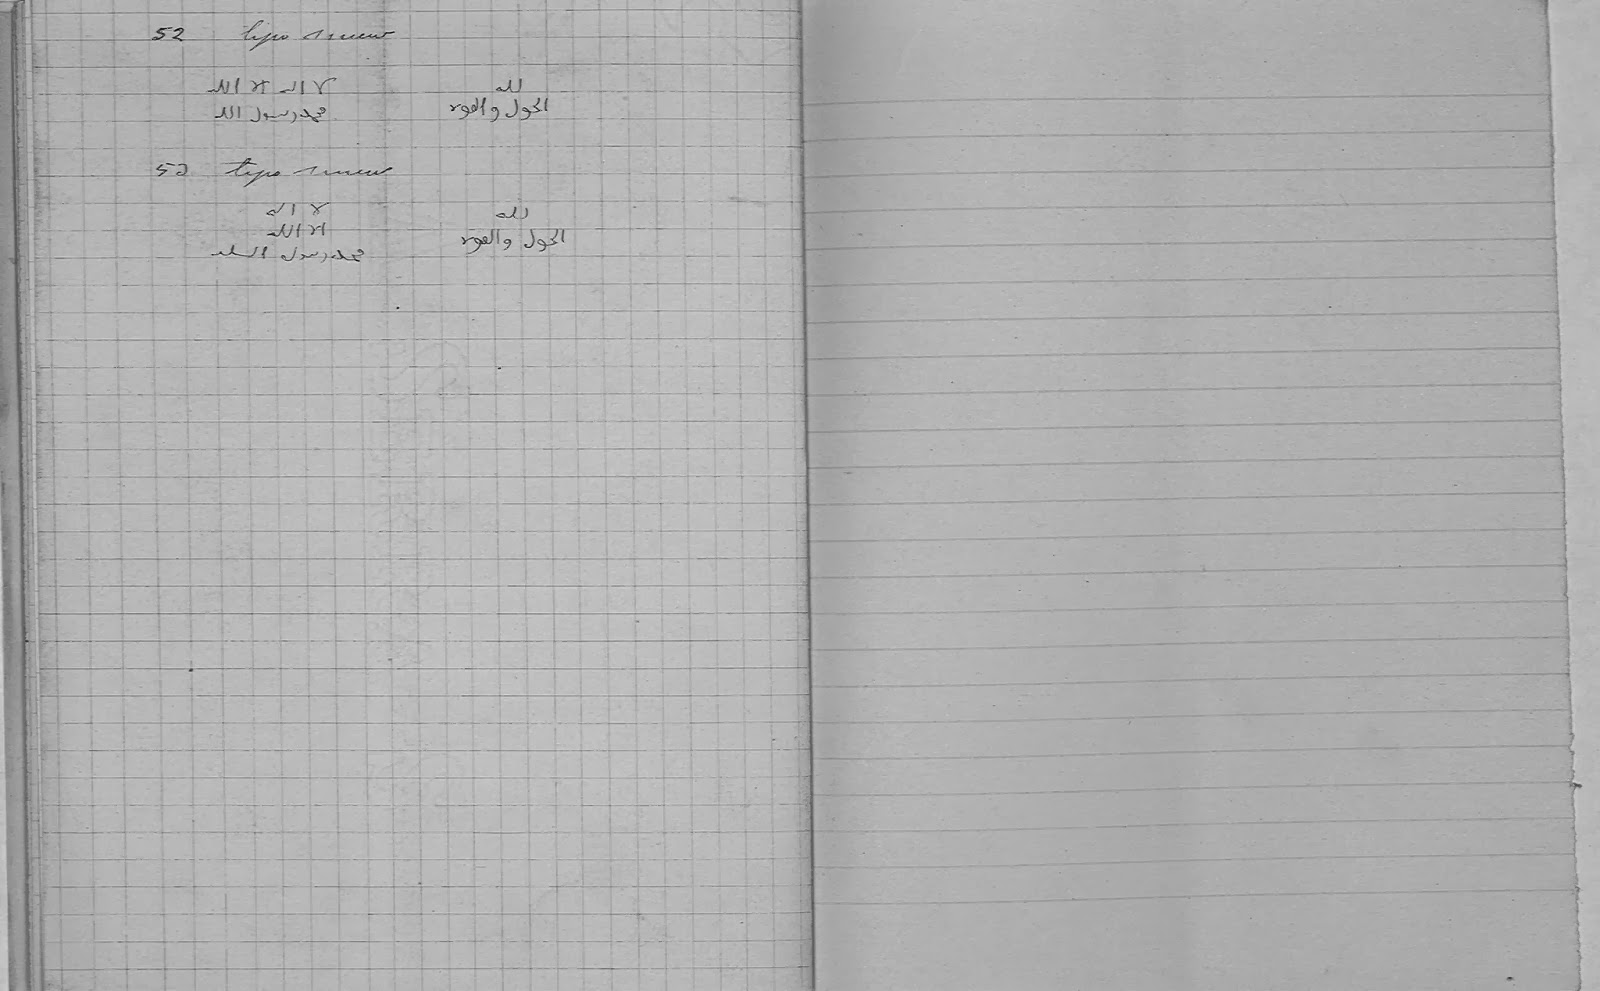 52 tipo
لا اله الا الله
محمد رسول الله
لله
الحول والقوه
53 tipo
لا اله
الا الله
محمد رسول الله
لله
الحول والقوه